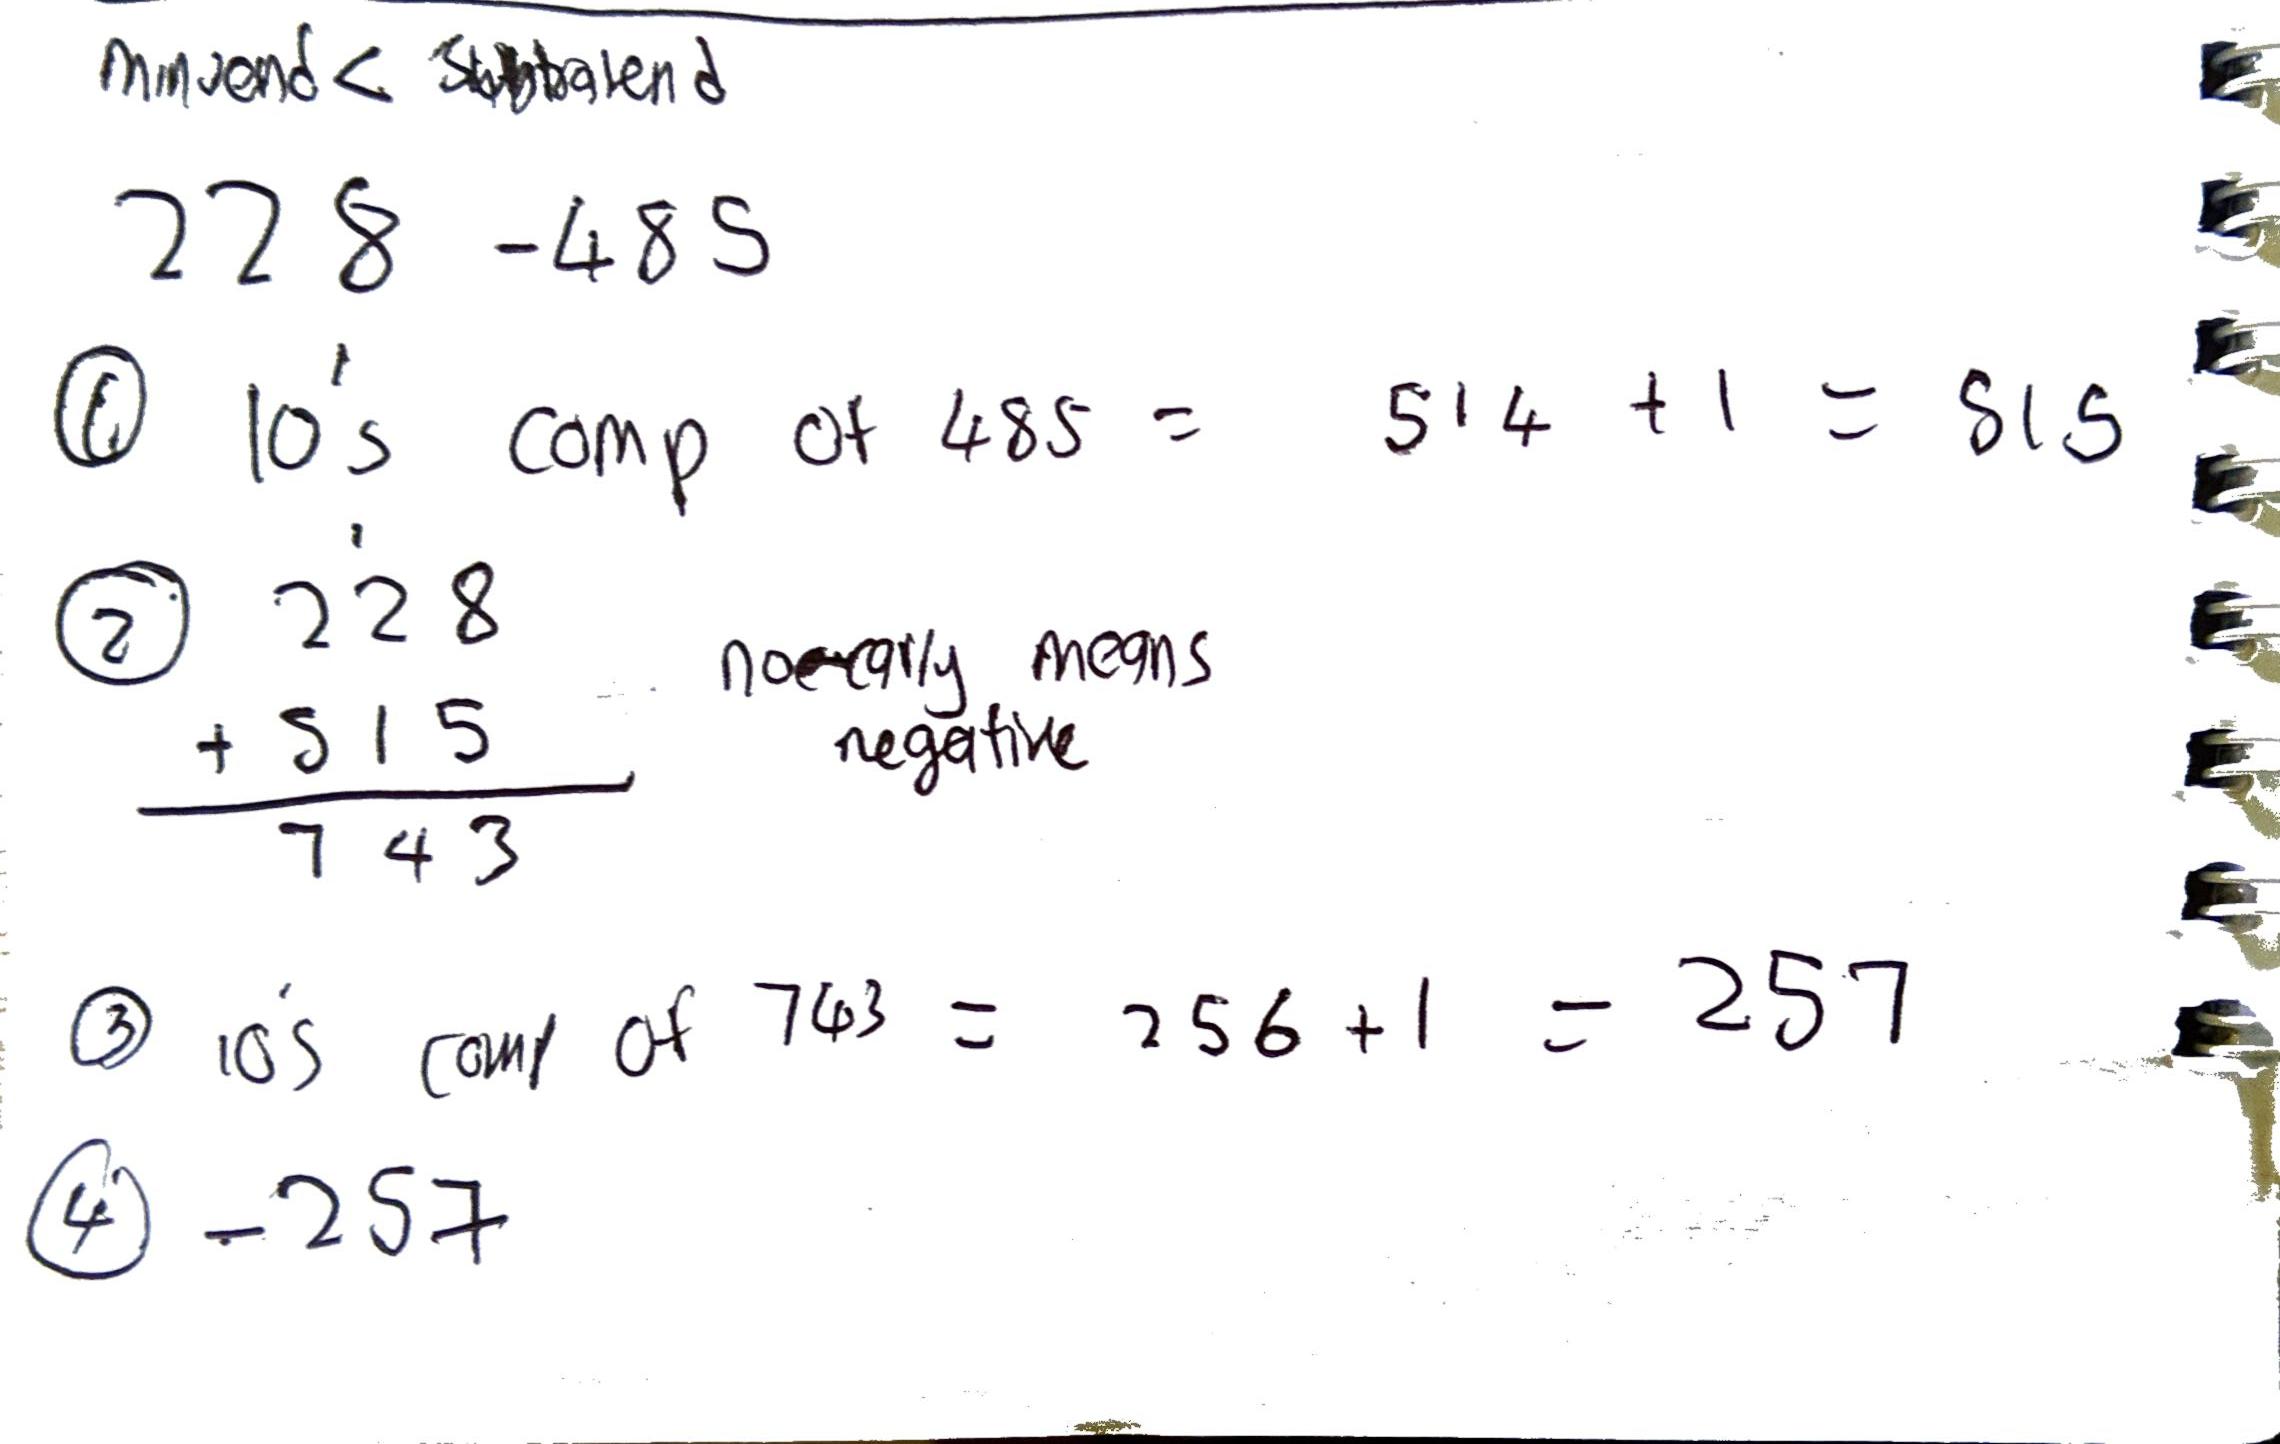 minuend <
228 - 485
① 10's comp of 485 = 514 + 1 = 515
② 228
+ 515
743
no carry means
negative
③ 10's comp of 743 = 256 + 1 = 257
④ - 257